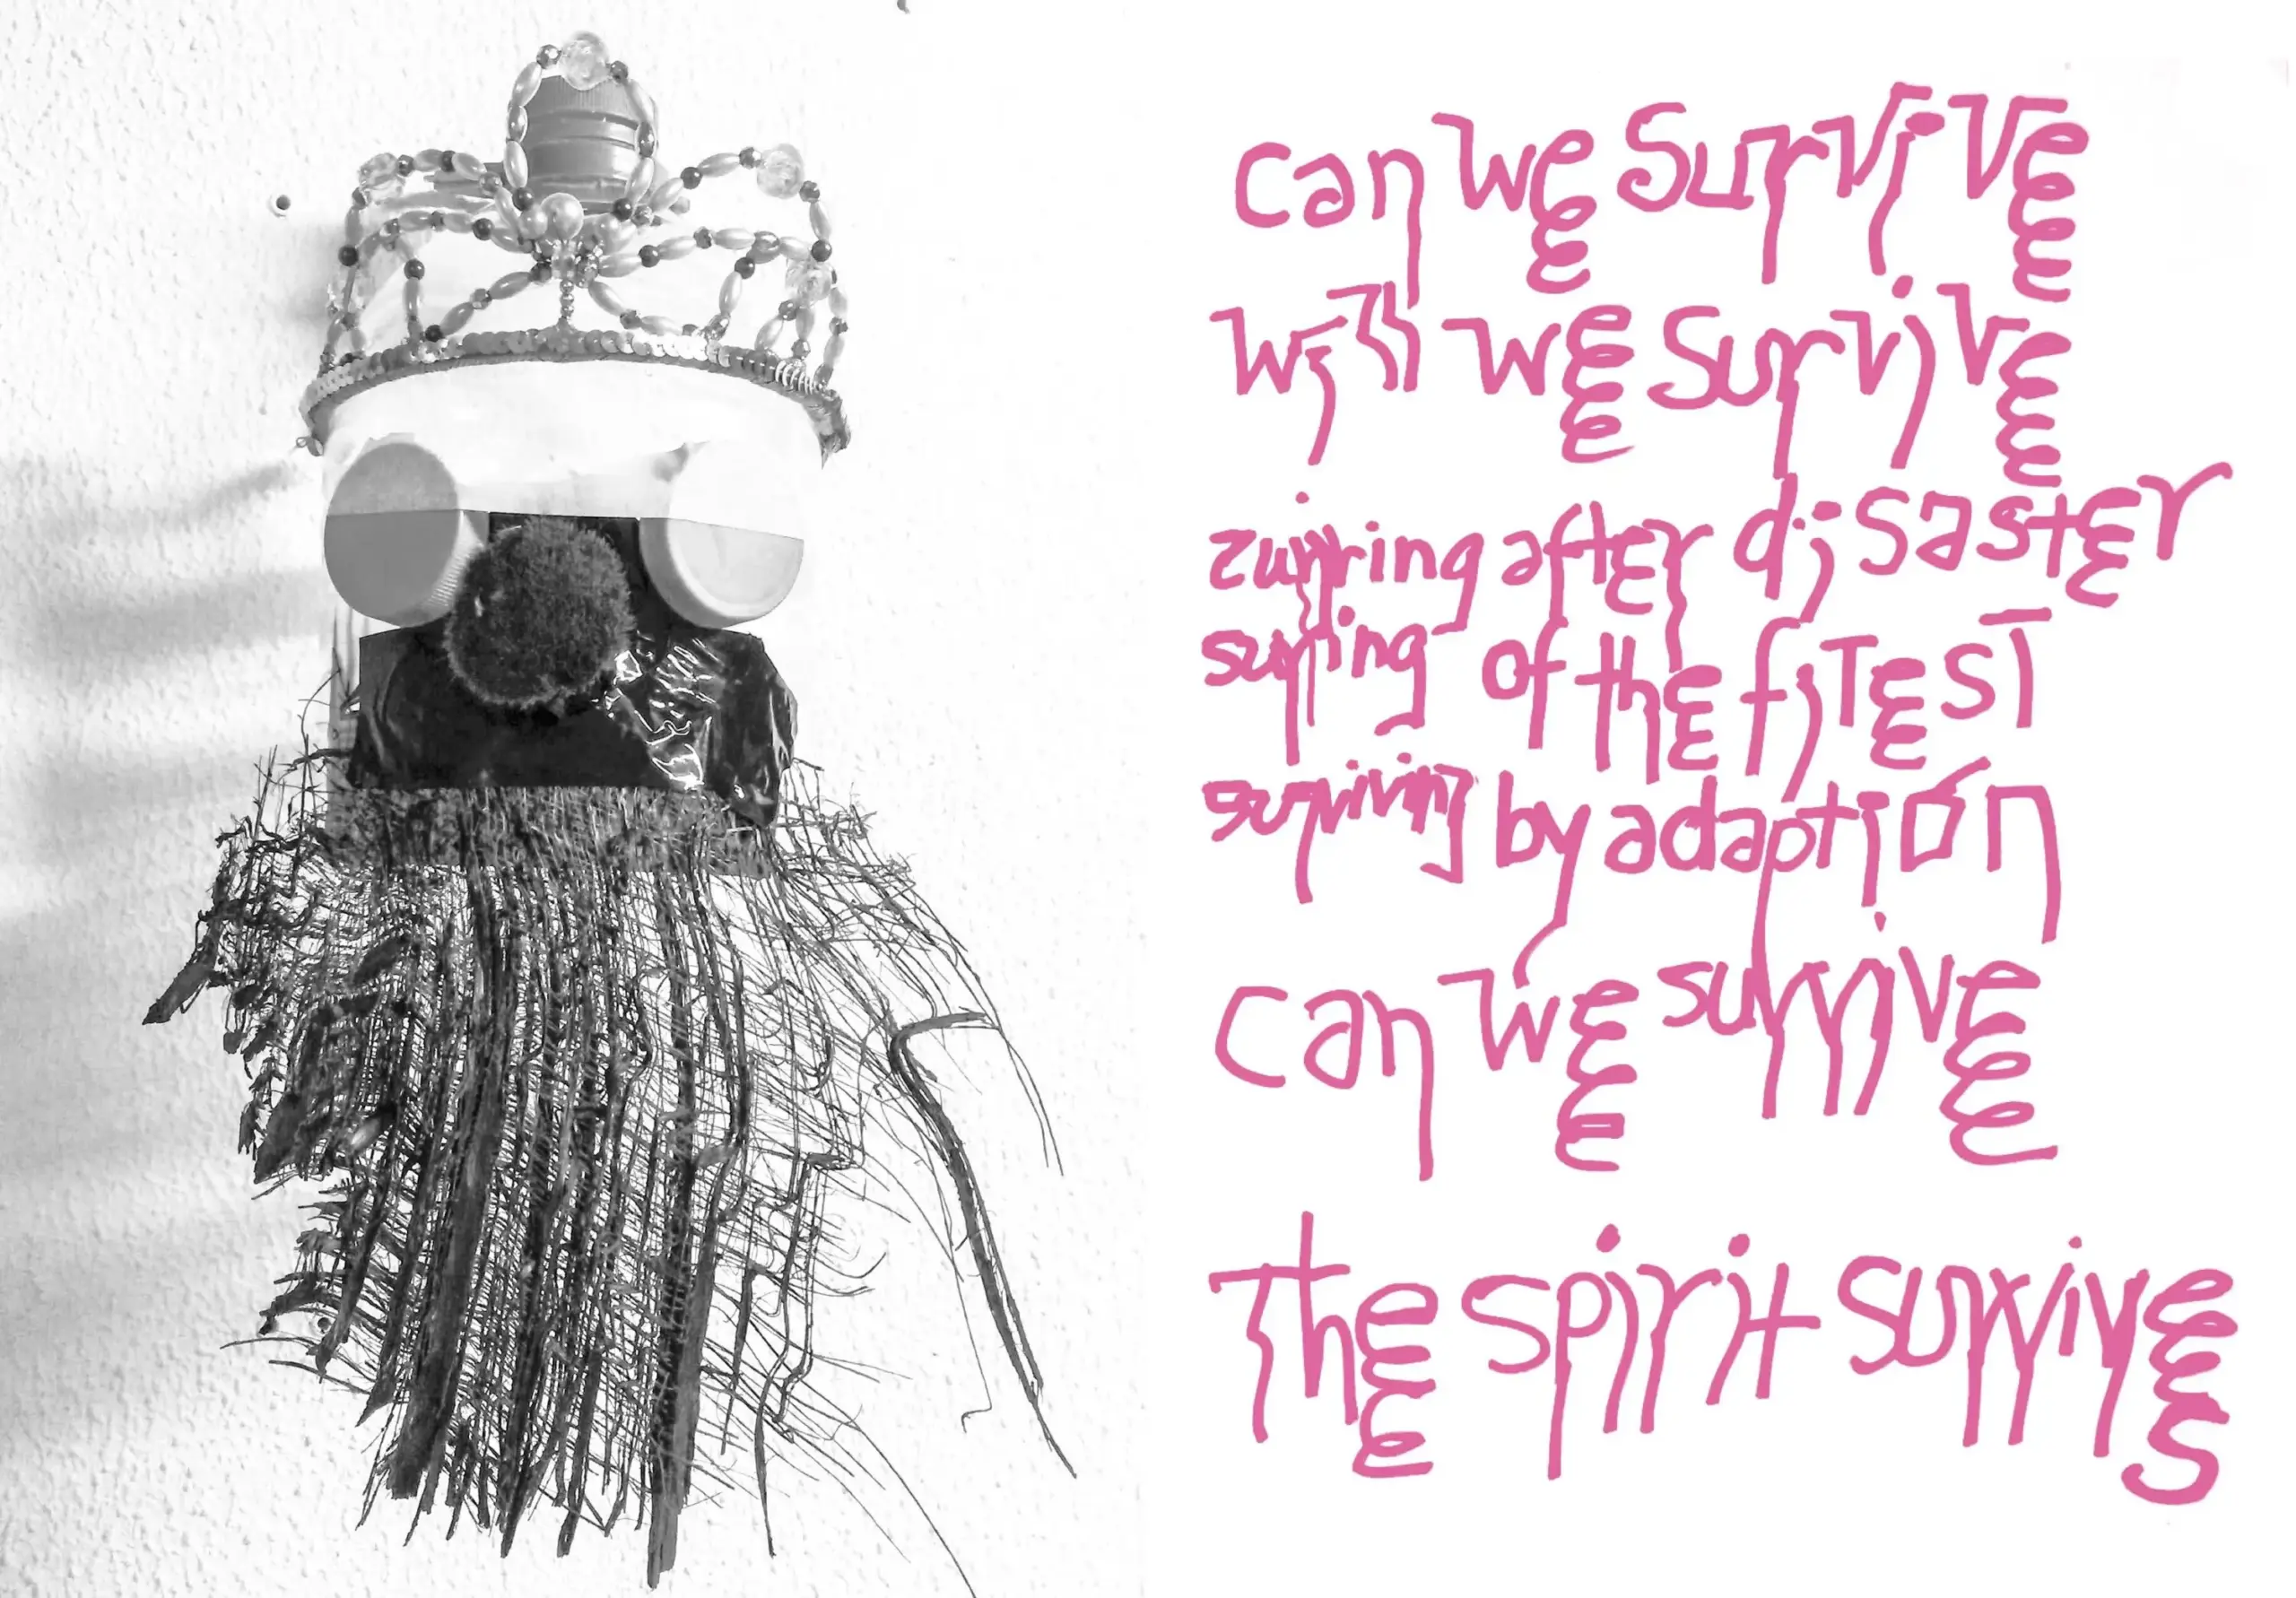 can we survive
will we survive
after disaster
of the fiTEST
surviving by adaption
can we survive
The spirit survives